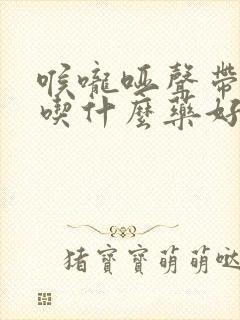 喉嚨啞聲帶
喫什麼藥好
猪寶寶萌萌噠